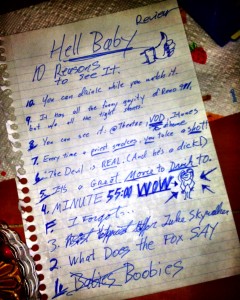 Review
Hell Baby
10 Reasons
to see It.
10. You can drink while you watch it.
9. It has all the funny of Reno 911.
but w/ all the
8. You can see it: @Theater, VOD, ITunes
7. Every time a priest smokes.. you take a shot!
6. The Devil is REAL. (And he's a dick)
5. It's a Great Movie to Drink to.
4. MINUTE 55:00 WOW
F. I Forgot...
3. Luke Skywalker
2. What Does the Fox SAY
1. Babies Boobies